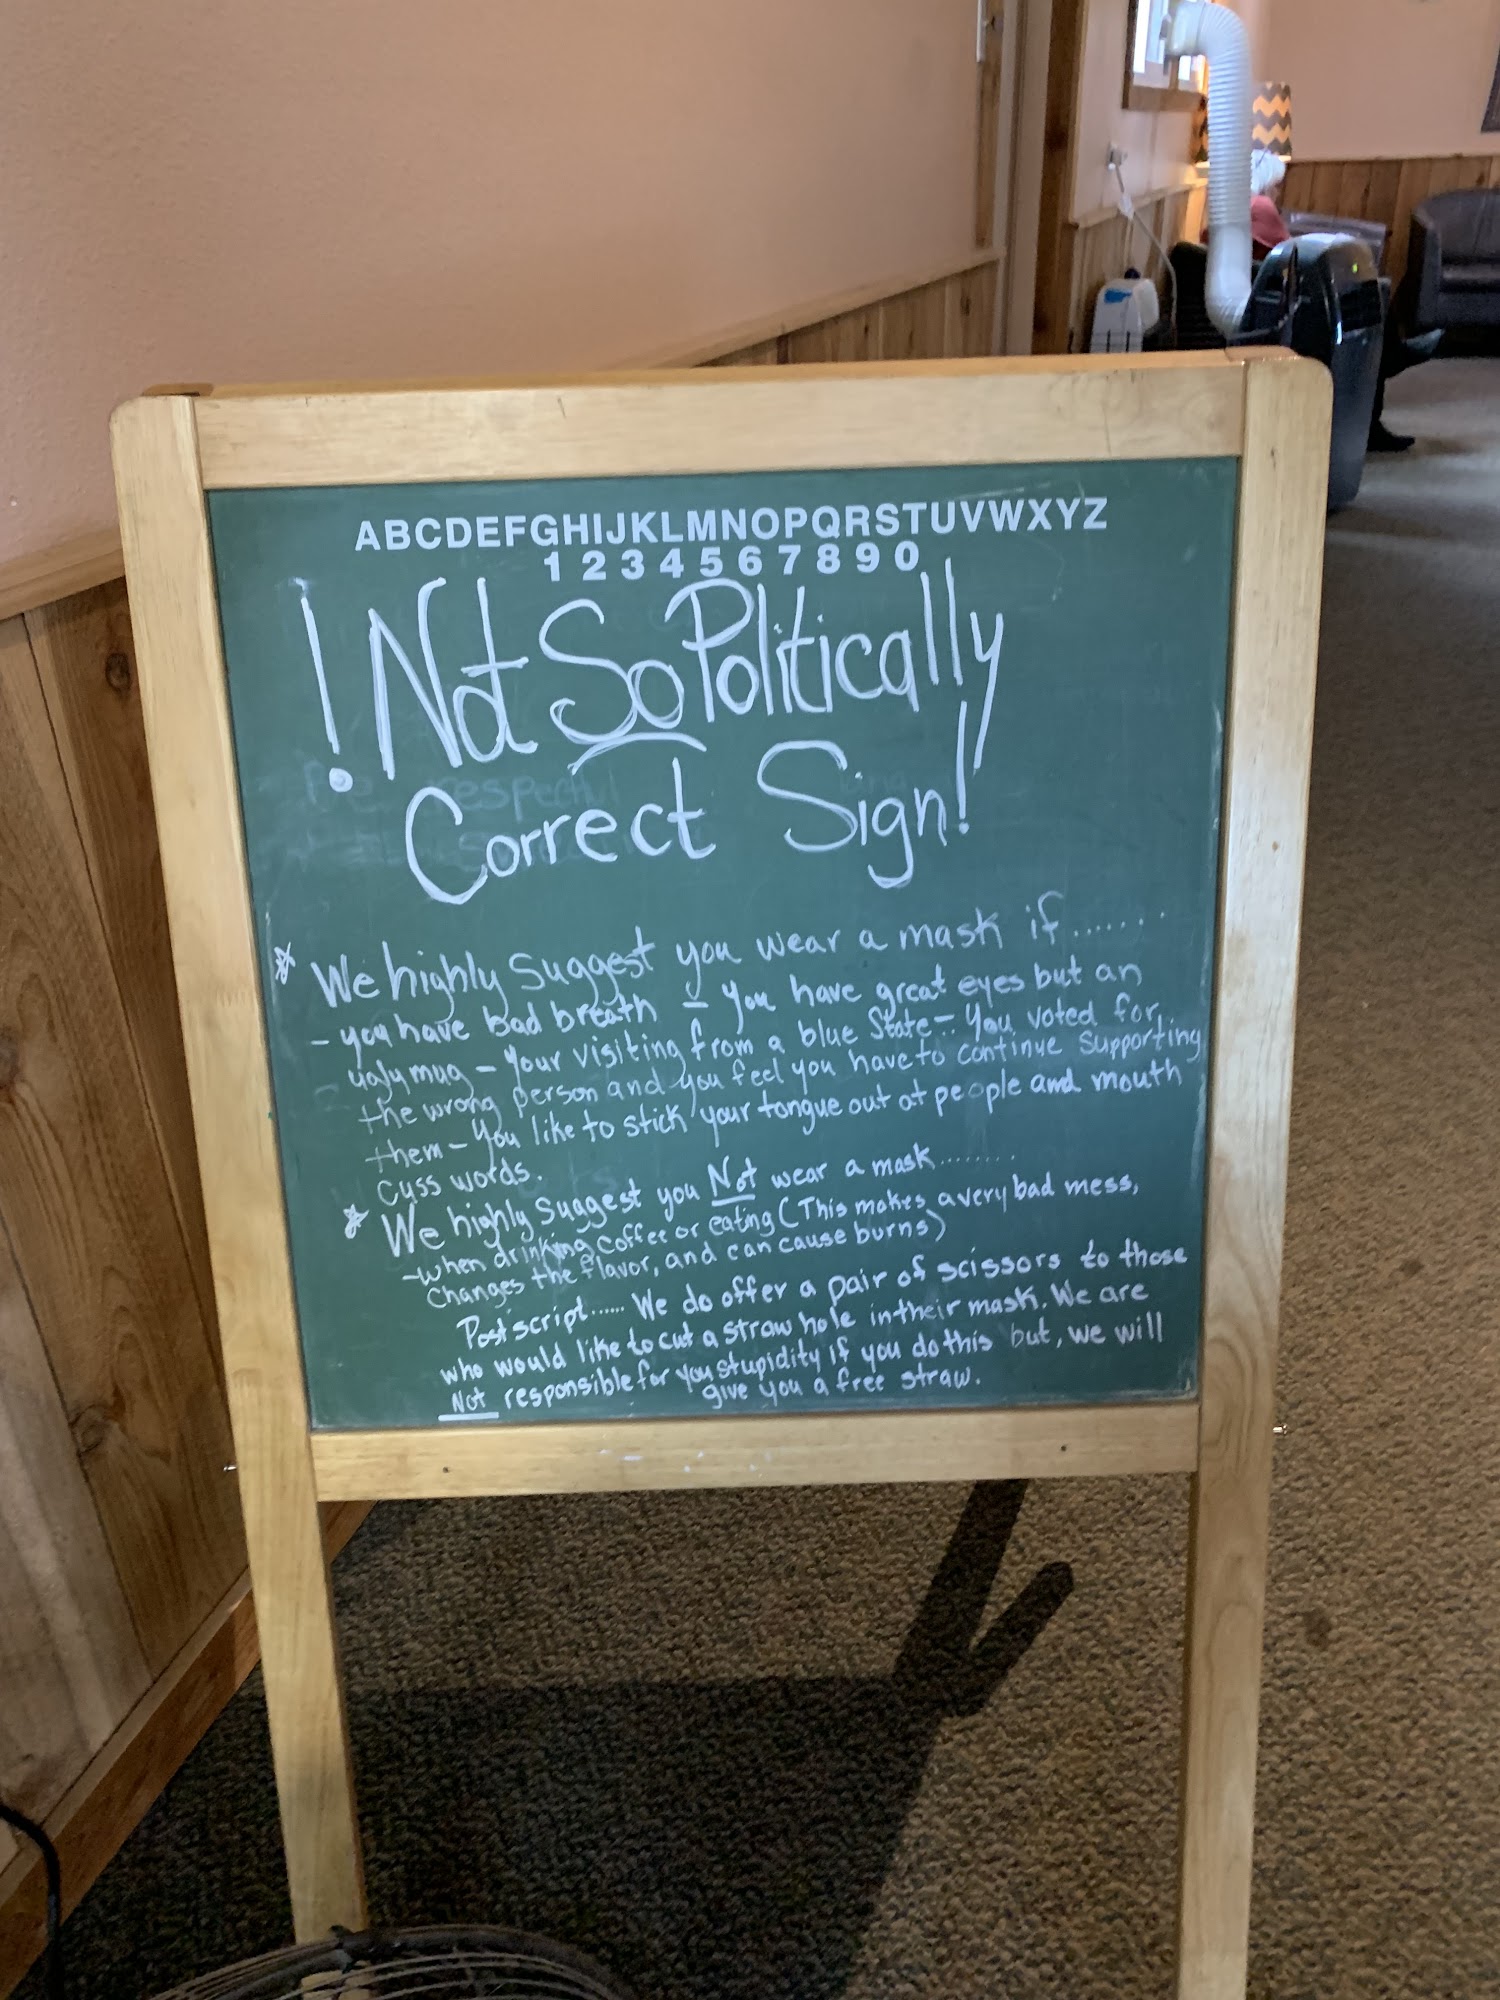 ABCDEFGHIJKLMNOPQRSTUVWXYZ
1234567890
! Not So Politically
Correct Sign!
* We highly Suggest you wear a mask if.......
- you have bad breath - you have great eyes but an
ugly mug - Your visiting from a blue State - You voted for
the wrong person and you feel you have to continue supporting
them - You like to stick your tongue out at people and mouth
cuss words.
* We highly Suggest you Not wear a mask.........
- when drinking coffee or eating (This makes a very bad mess,
changes the flavor, and can cause burns)
Postscript...... We do offer a pair of scissors to those
who would like to cut a straw hole in their mask. We are
Not responsible for you stupidity if you do this but, we will
give you a free straw.